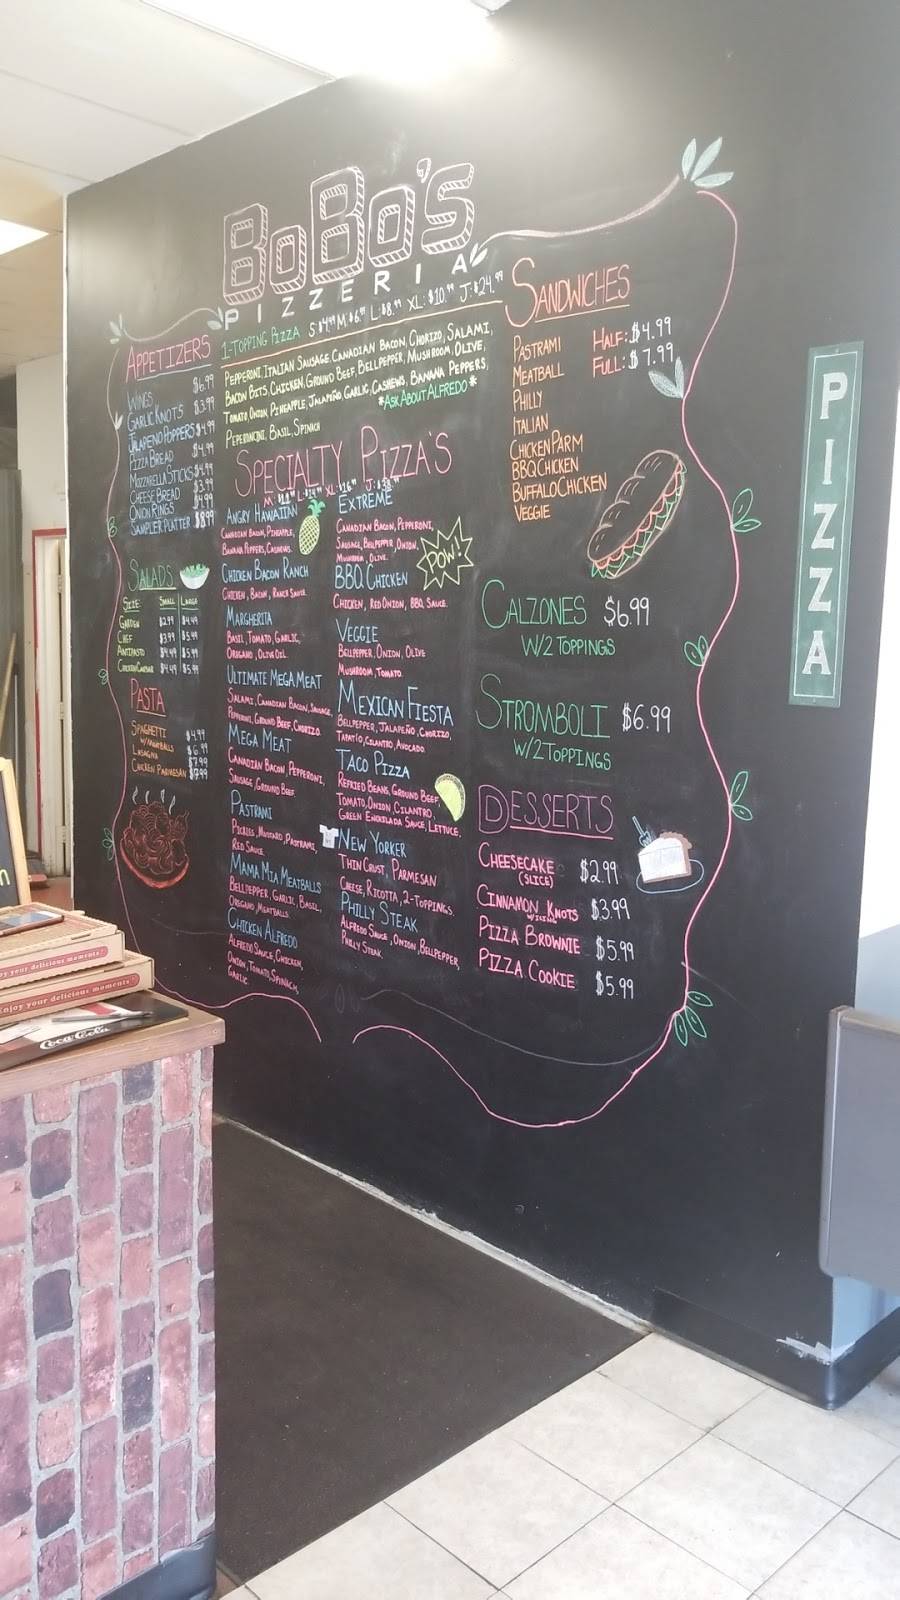 BoBo's
PIZZERIA
1-Topping Pizza S:$4.99 M:$6.99 L:$8.99 XL:$10.99 J:$24.99
Pepperoni, Italian Sausage, Canadian Bacon, Chorizo, Salami,
Bacon Bits, Chicken, Ground Beef, Bellpepper, Mushroom, Olive,
Tomato, Onion, Pineapple, Jalapeño, Garlic, Cashews, Banana Peppers,
Peperoncini, Basil, Spinach
*Ask About Alfredo*
Appetizers
Wings $6.99
Garlic Knots $3.99
Jalapeno Poppers $4.99
Pizza Bread $4.99
Mozzarella Sticks $4.99
Cheese Bread $3.99
Onion Rings $4.99
Sampler Platter $8.99
Salads
Size: Small Large
Garden $2.99 $4.49
Chef $3.99 $5.99
Antipasto $4.49 $5.99
Chicken Caesar $4.49 $5.99
Pasta
Spaghetti $4.99
w/Meatballs $6.99
Lasagna $7.99
Chicken Parmesan $7.99
Specialty Pizza's
Angry Hawaiian
Canadian Bacon, Pineapple,
Banana Peppers, Cashews.
Chicken Bacon Ranch
Chicken, Bacon, Ranch Sauce.
Margherita
Basil, Tomato, Garlic,
Oregano, Olive Oil
Ultimate Mega Meat
Salami, Canadian Bacon, Sausage,
Pepperoni, Ground Beef, Chorizo.
Mega Meat
Canadian Bacon, Pepperoni,
Sausage, Ground Beef
Pastrami
Pickles, Mustard, Pastrami,
Red Sauce
Mama Mia Meatballs
Bellpepper, Garlic, Basil,
Oregano, Meatballs.
Chicken Alfredo
Alfredo Sauce, Chicken,
Onion, Tomato, Spinach,
Garlic.
Extreme
Canadian Bacon, Pepperoni,
Sausage, Bellpepper, Onion,
Mushroom, Olive.
POW!
BBQ Chicken
Chicken, Red Onion, BBQ Sauce.
Veggie
Bellpepper, Onion, Olive
Mushroom, Tomato.
Mexican Fiesta
Bellpepper, Jalapeño, Chorizo,
Tapatío, Cilantro, Avocado.
Taco Pizza
Refried Beans, Ground Beef,
Tomato, Onion, Cilantro,
Green Enchilada Sauce, Lettuce.
New Yorker
Thin Crust, Parmesan
Cheese, Ricotta, 2-Toppings.
Philly Steak
Alfredo Sauce, Onion, Bellpepper,
Philly Steak.
Sandwiches
Pastrami
Meatball
Philly
Italian
Chicken Parm
BBQ Chicken
Buffalo Chicken
Veggie
Half: $4.99
Full: $7.99
Calzones $6.99
w/2 Toppings
Stromboli $6.99
w/2 Toppings
Desserts
Cheesecake $2.99
(slice)
Cinnamon Knots $3.99
Pizza Brownie $5.99
Pizza Cookie $5.99
PIZZA
your delicious moments
Enjoy your delicious moments
Coca-Cola